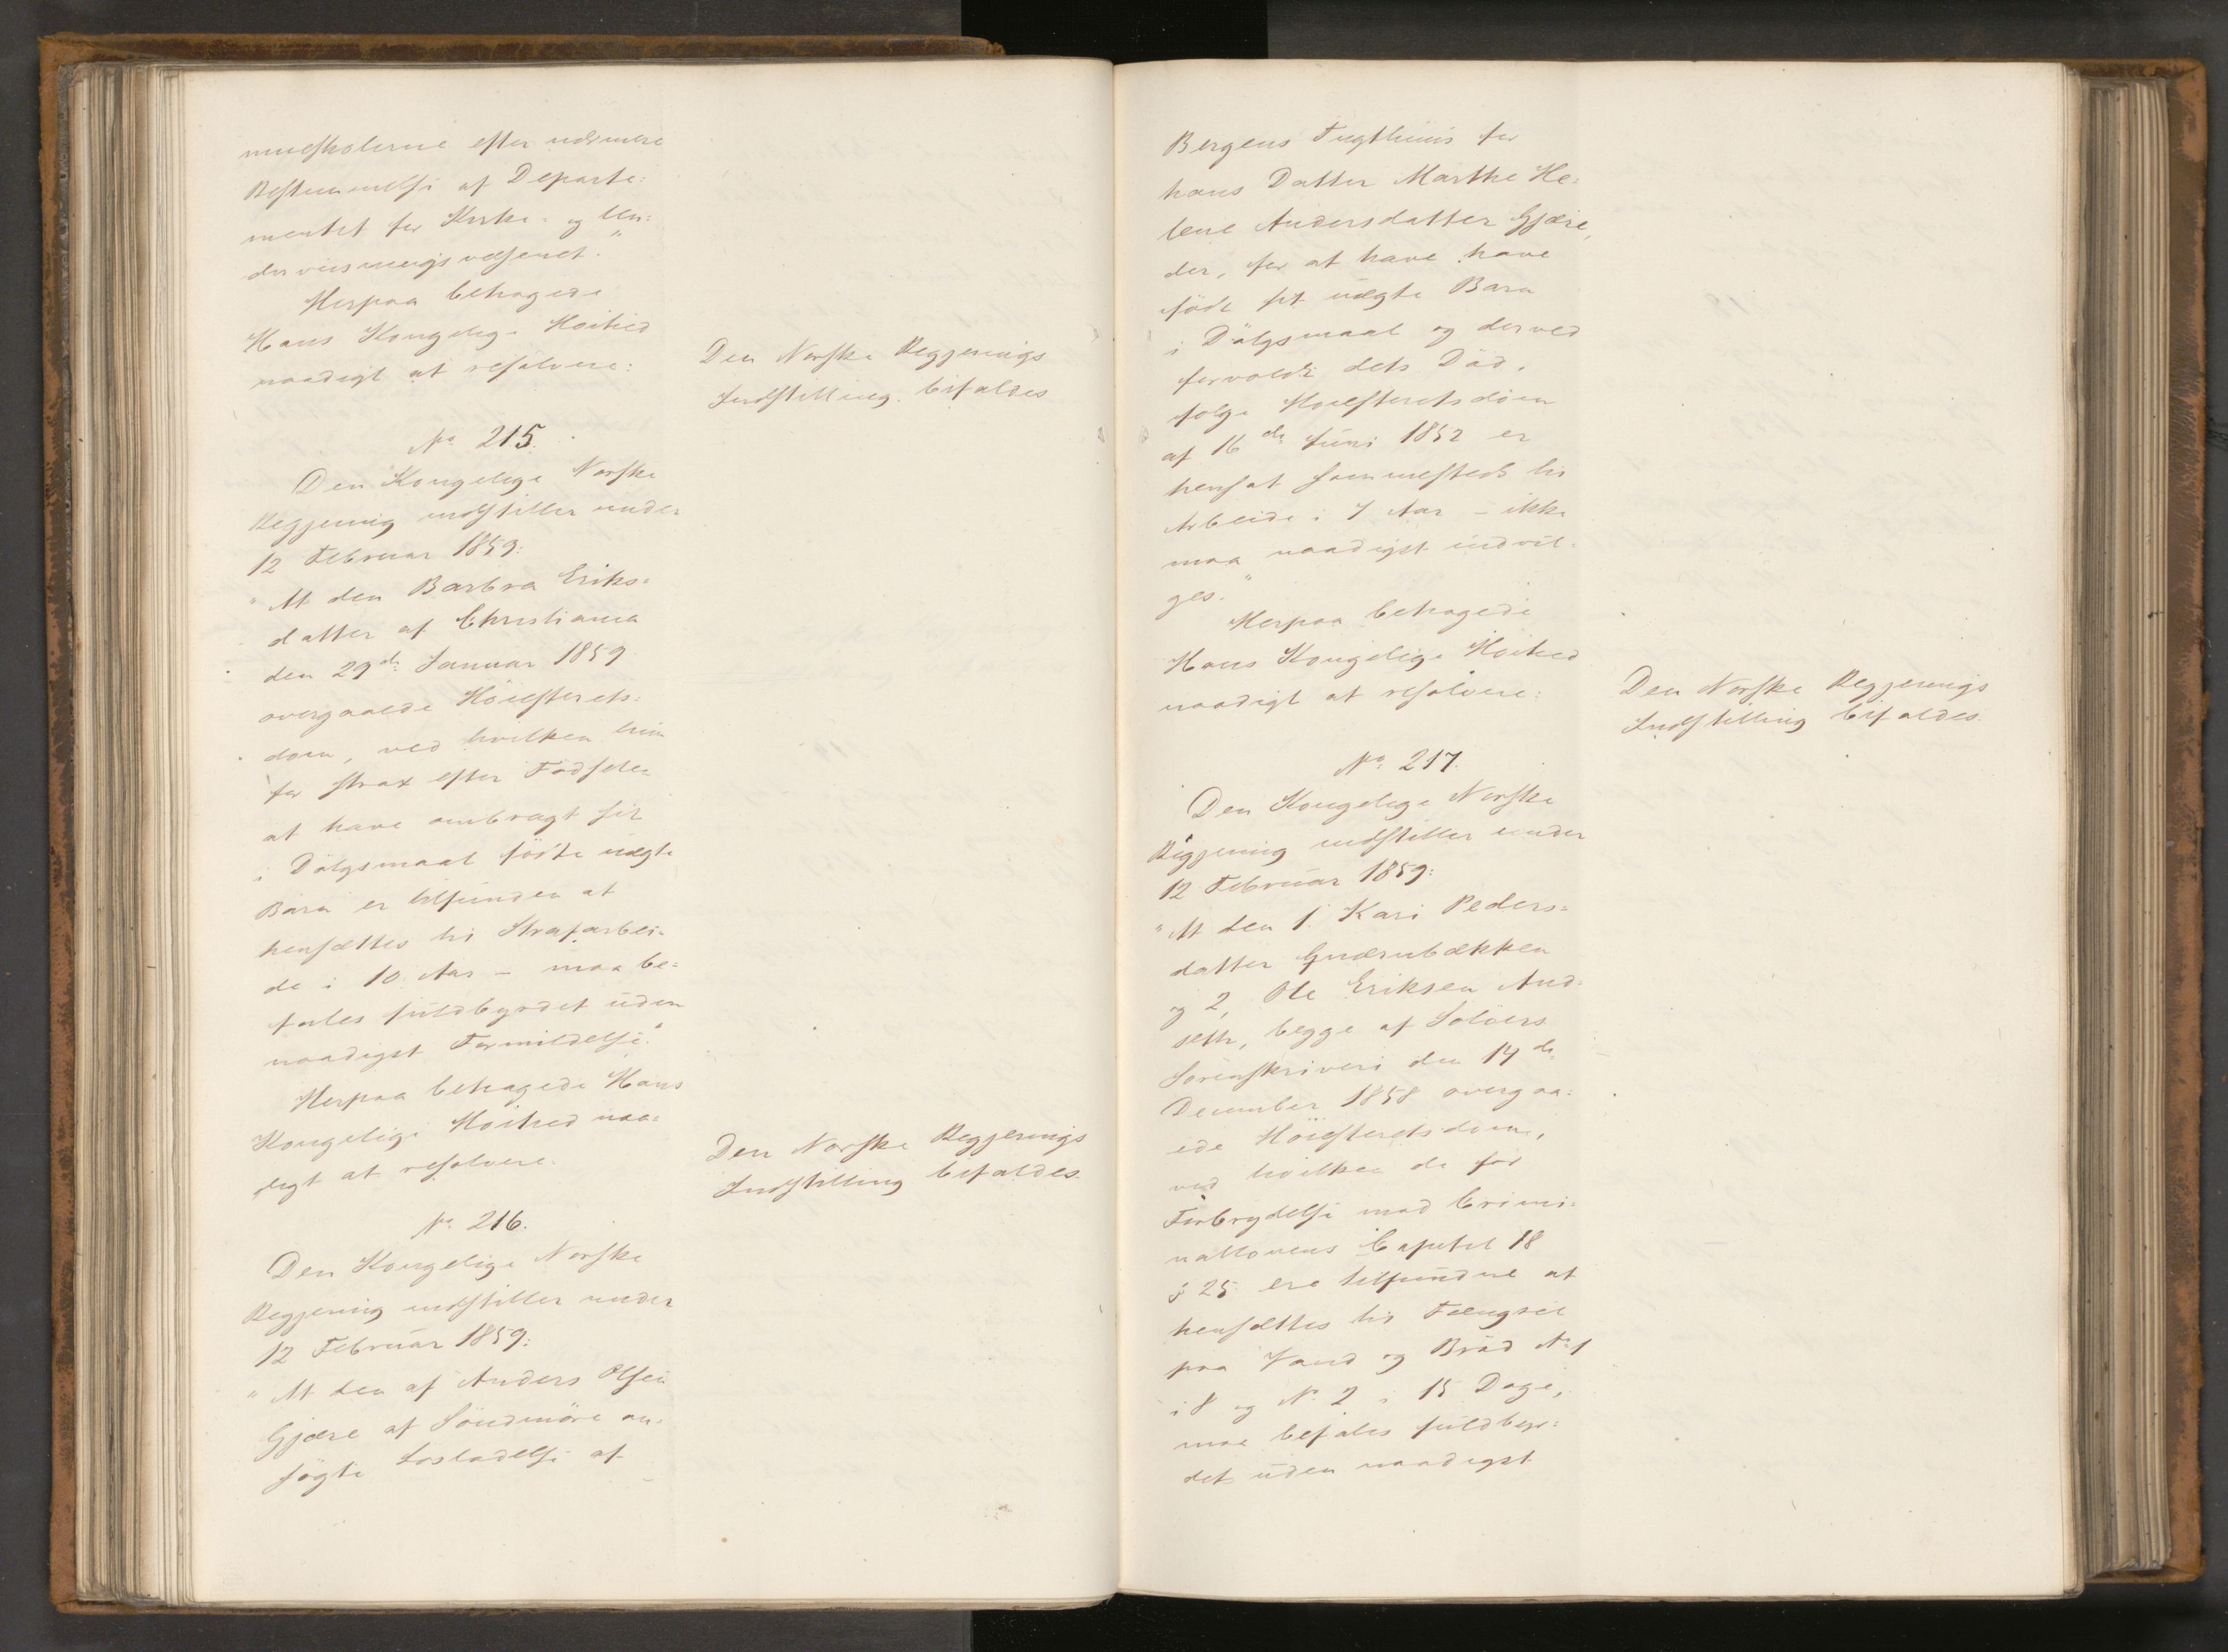 mueskolerne efter nærmere
Bestemmelse af Departe=
mentet for Kirke= og Un=
derviisningsvæsenet."
Herpaa behagede
Hans Kongelige Høihed
naadigt at resolvere:
Den Norske Regjerings
Indstilling bifaldes
No 215.
Den Kongelige Norske
Regjering indstiller under
12 Februar 1859:
"At den Barbra Eriks=
datter af Christiania
den 29de Januar 1859
overgaaede Höiesterets=
dom, ved hvilken hun
for strax efter Födselen
at have ombragt sit
i Dölgsmaal födte uægte
Barn er tilfunden at
hensættes til Strafarbei=
de i 10 Aar – maa be=
fales fuldbyrdet uden
naadigst Formildelse."
Herpaa behagede Hans
Kongelige Höihed naa=
digt at resolvere.
Den Norske Regjerings
Indstilling bifaldes.
No 216.
Den Kongelige Norske
Regjering indstiller under
12 Februar 1859:
"At den af Anders Olsen
Gjære af Söndmöre an=
søgte Losladelse af
Bergens Tugthuus for
hans Datter Marthe He=
lene Andersdatter Gjære,
der, for at have have
födt sit uægte Barn
i Dölgsmaal og derved
forvoldt dets Död,
fölge Høiesteretsdom
af 16de Juni 1852 er
hensat sammesteds til
Arbeide i 7 Aar – ikke
maa naadigst indvil=
ges."
Herpaa behagede
Hans Kongelige Höihed
naadigt at resolvere:
Den Norske Regjerings
Indstilling bifaldes.
No 217.
Den Kongelige Norske
Regjering indstiller under
12 Februar 1859:
"At den 1. Kari Peders=
datter Gnærubækken
og 2, Ole Eriksen And=
seth, begge af Solöers
Sorenskriveri den 14de
December 1858 overgaa=
ede Höiesteretsdom,
ved hvilken de for
Forbrydelse mod Crimi=
nallovens Capitel 18
§ 25 ere tilfundne at
hensættes til Fængsel
paa Vand og Bröd No 1
i 8 og No 2 i 15 Dage,
maa befales fuldbyr=
det uden naadigst